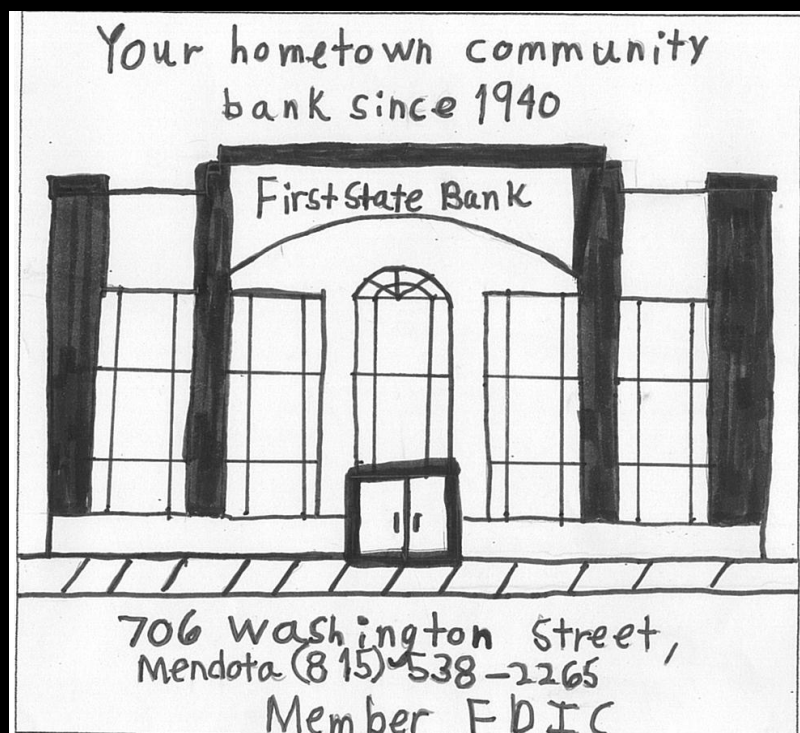 Your hometown community
bank since 1940
First State Bank
706 Washington Street,
Mendota (815) 538-2265
Member FDIC